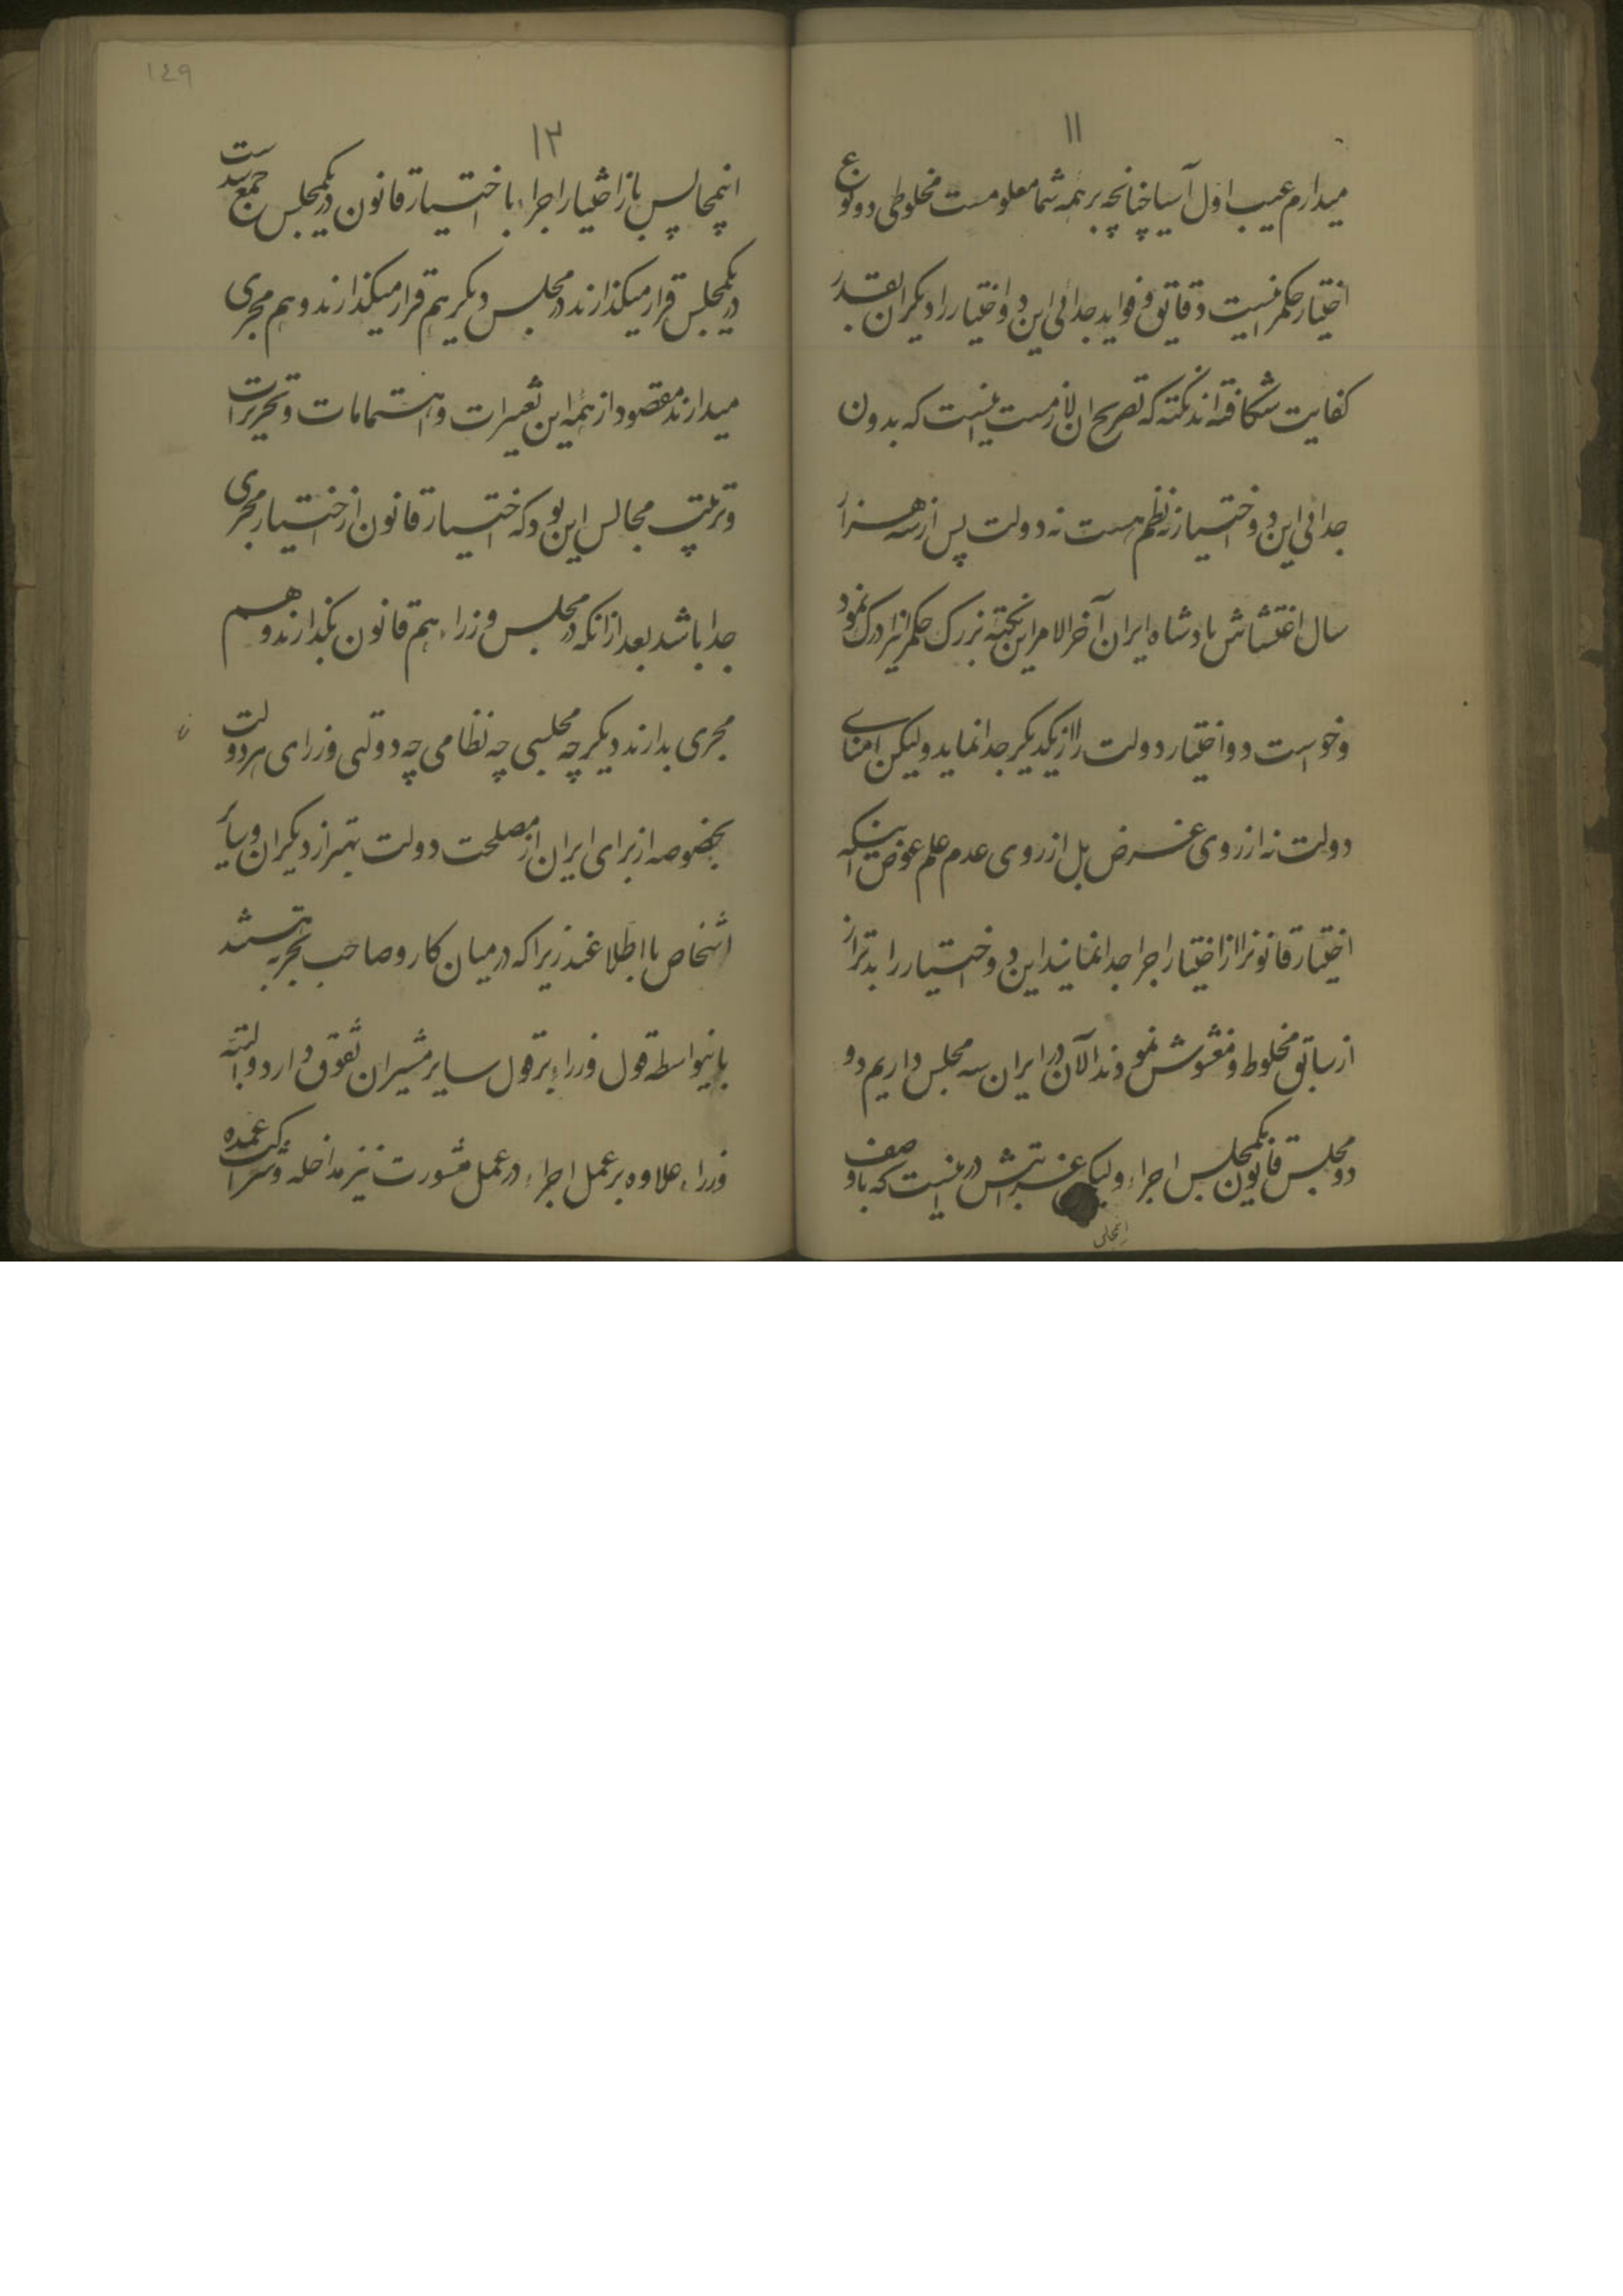 ۱۱
میدارم عیب اول آسیا چنانچه بر همه شما معلومست مخلوطی دو نوع
اختیار حکمرانیست دقایق و فواید جدائی این دو اختیار را دیگران بقدر
کفایت شکافته‌اند نکته که تصریح ان لازمست اینست که بدون
جدائی این دو اختیار نه نظم هست نه دولت پس از سه هزار
سال اغتشاش پادشاه ایران آخر الامر این نکته بزرک حکمرانیرا درک نمود
و خواست دو اختیار دولت را از یکدیکر جدا نماید ولیکن امنای
دولت نه از روی غرض بل از روی عدم علم عوض اینکه
اختیار قانونرا از اختیار اجرا جدا نمایند این دو اختیار را بدتر از
از سابق مخلوط و مغشوش نمودند الآن در ایران سه مجلس داریم دو
دو مجلس قانون یکمجلس اجراء ولیکن غرابتش در اینست که با وصف
اینمجالس
۱۴۹
۱۲
اینمجالس باز اختیار اجراء با اختیار قانون در یکمجلس جمع شده است
در یکمجلس قرار میکذارند در مجلس دیکر هم قرار میکذارند و هم مجری
میدارند مقصود از همه این تغییرات و اهتمامات و تحریرات
و ترتیب مجالس این بود که اختیار قانون از اختیار مجری
جدا باشد بعد از انکه در مجلس وزراء هم قانون بکذارند و هم
مجری بدارند دیکر چه مجلسی چه نظامی چه دولتی وزرای هر دولت
بخصوصه از برای ایران از مصلحت دولت بهتر از دیکران و سایر
اشخاص با اطلاعند زیرا که در میان کار و صاحب تجربه هستند
باینواسطه قول وزراء بر قول سایر مشیران تفوق دارد و البته
وزراء علاوه بر عمل اجراء در عمل مشورت نیز مداخله و شراکت عمده